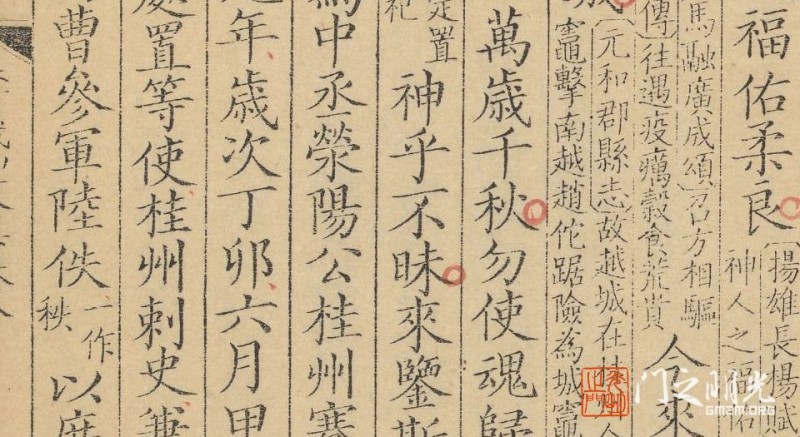 福佑柔良
揚雄長楊賦
神人之福佑
馬融廣成頌召方相驅
傳往遇疫癘穀食荒貴
今來
元和郡縣志故越城在
竈擊南越趙佗踞險為城竈
萬歲千秋勿使魂歸
定置
祀
神乎不昧來鑒斯
中丞滎陽公桂州賽
年歲次丁卯六月甲
處置等使桂州刺史兼
曹參軍陸佚
一作
秩
以庶
门之明光